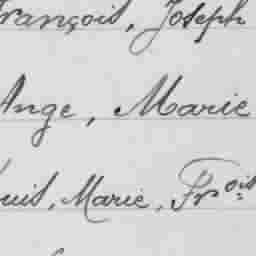 François, Joseph
Ange, Marie
Louis, Marie, Frois